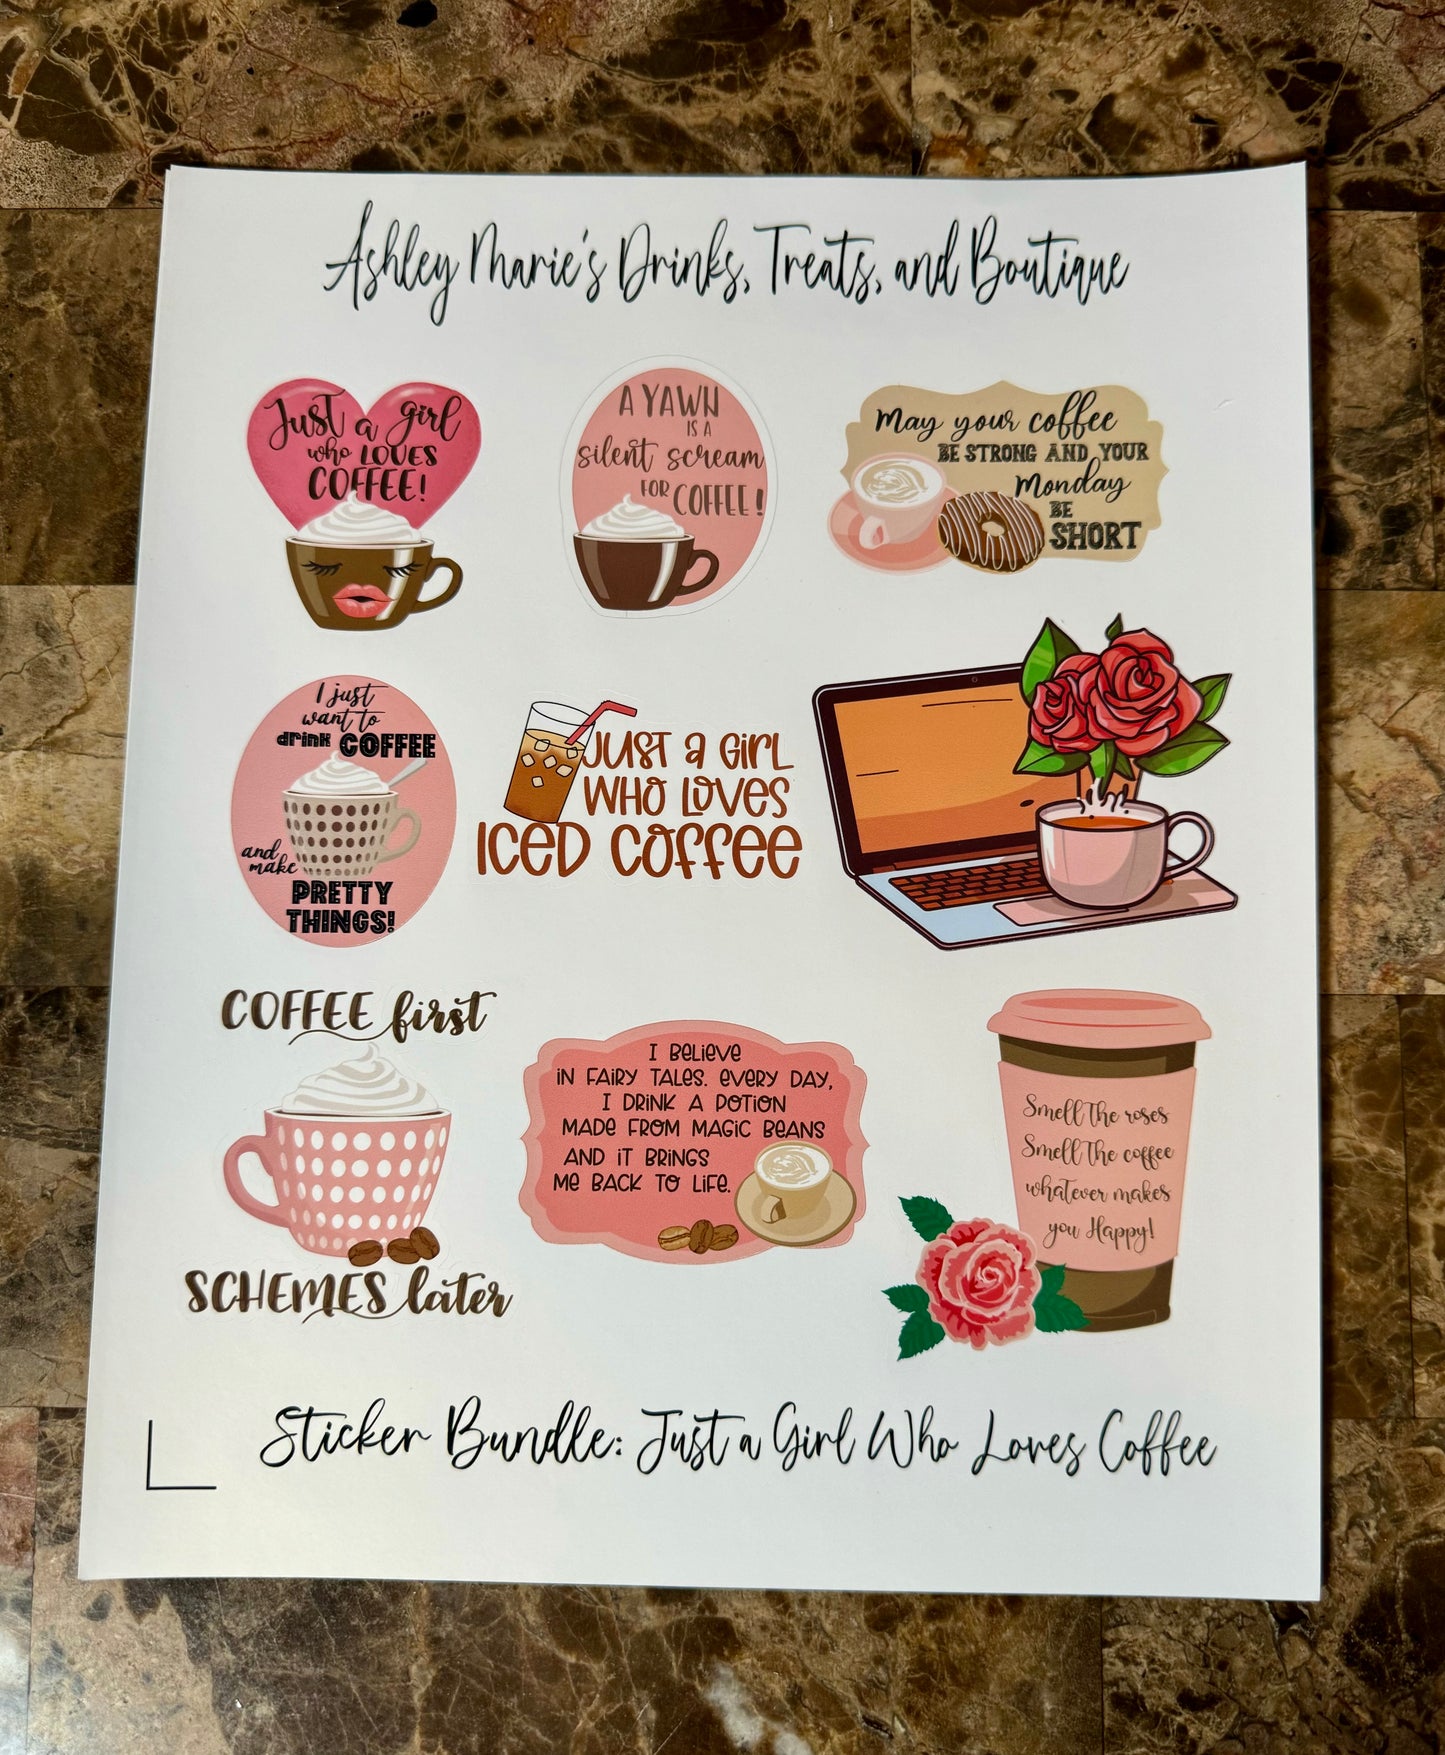 Ashley Marie's Drinks, Treats, and Boutique
Just a girl
who LOVES
COFFEE!
A YAWN
IS A
silent scream
FOR COFFEE!
May your coffee
BE STRONG AND YOUR
Monday
BE
SHORT
I just
want to
drink COFFEE
and
make
PRETTY
THINGS!
JUST A GIRL
WHO LOVES
ICED COFFEE
COFFEE first
SCHEMES later
I BELIEVE
IN FAIRY TALES. EVERY DAY,
I DRINK A POTION
MADE FROM MAGIC BEANS
AND IT BRINGS
ME BACK TO LIFE.
Smell the roses
Smell the coffee
whatever makes
you Happy!
Sticker Bundle: Just a Girl Who Loves Coffee